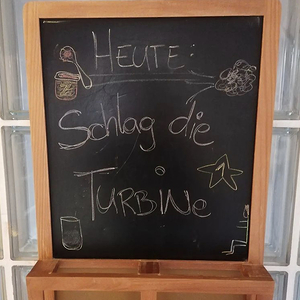 HEUTE:
Schlag die
TURBiNe
1